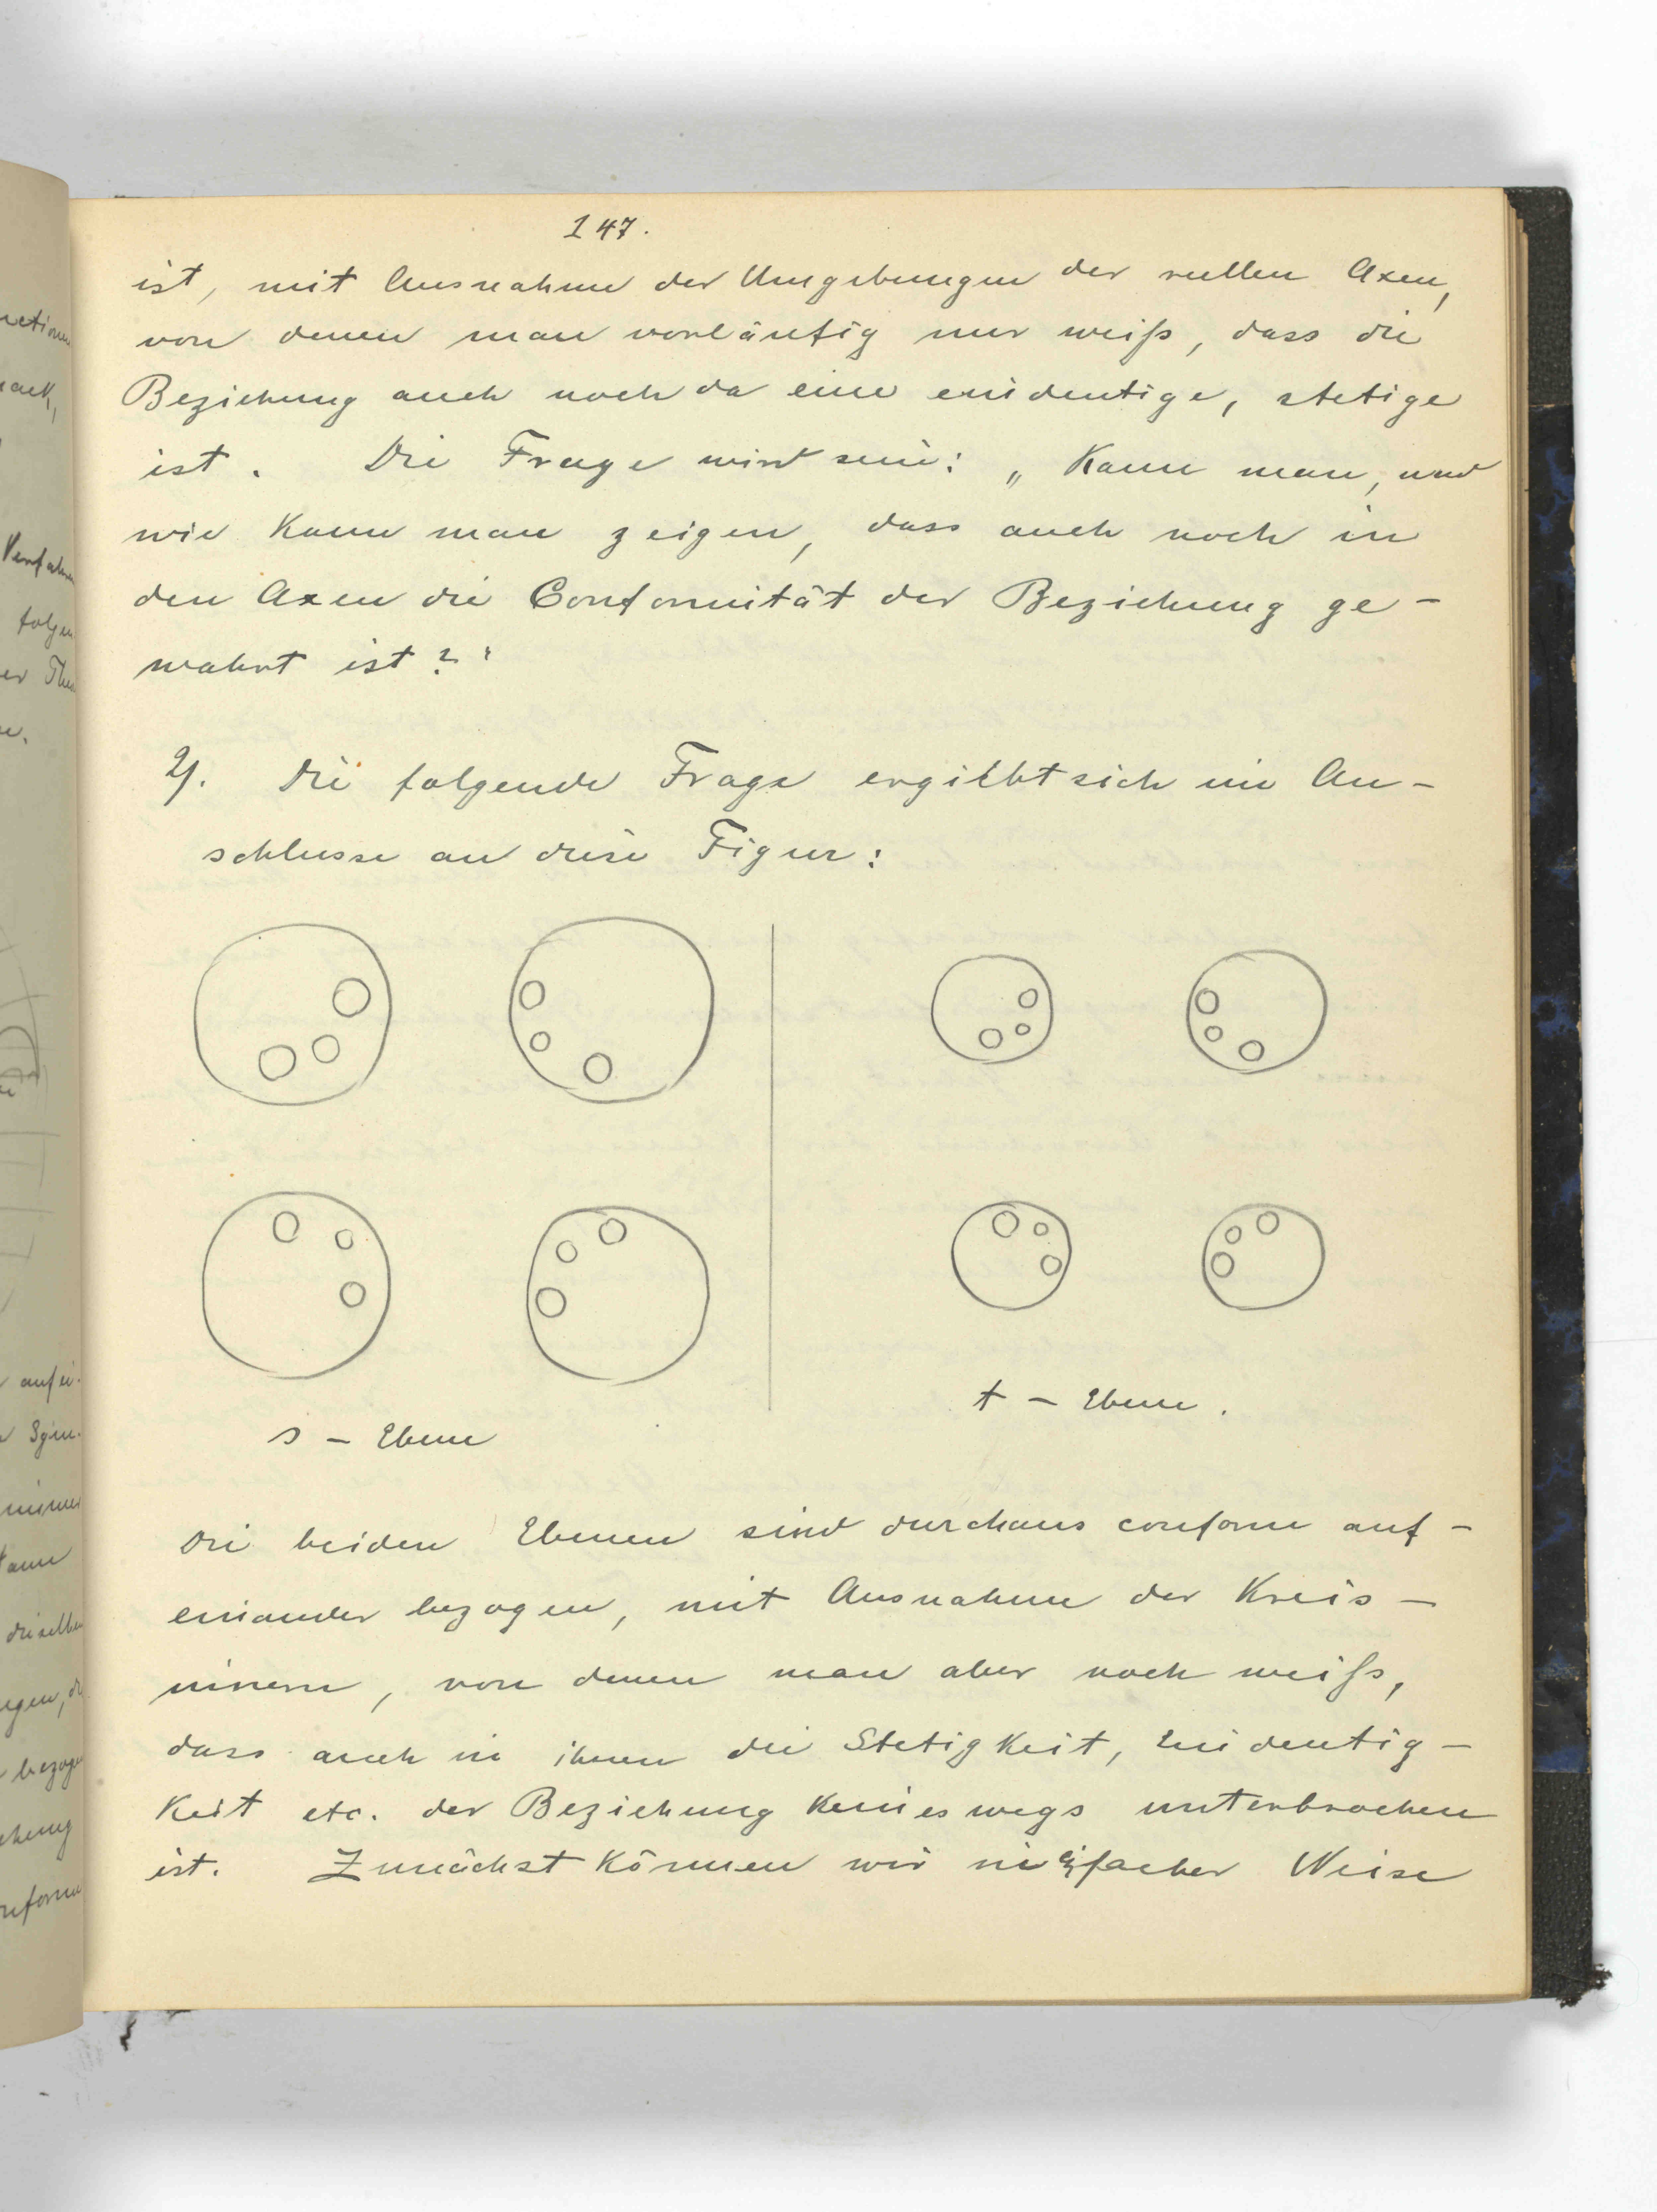 147.
ist, mit Ausnahme der Umgebungen der reellen Axen,
von denen man vorläufig nur weiß, dass die
Beziehung auch noch da eine eindeutige, stetige
ist. Die Frage wird sein: „Kann man, und
wie kann man zeigen, dass auch noch in
den Axen die Conformität der Beziehung ge-
wahrt ist?“
2). Die folgende Frage ergibt sich im An-
schlusse an diese Figur:
s - Ebene
t - Ebene.
Die beiden Ebenen sind durchaus conform auf-
einander bezogen, mit Ausnahme der Kreis-
innern, von denen man aber noch weiß,
dass auch in ihnen die Stetigkeit, Eindeutig-
keit etc. der Beziehung keineswegs unterbrochen
ist. Zunächst können wir in Weise